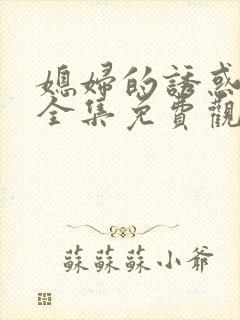 媳婦的誘惑
全集免費觀
蘇蘇蘇小爺